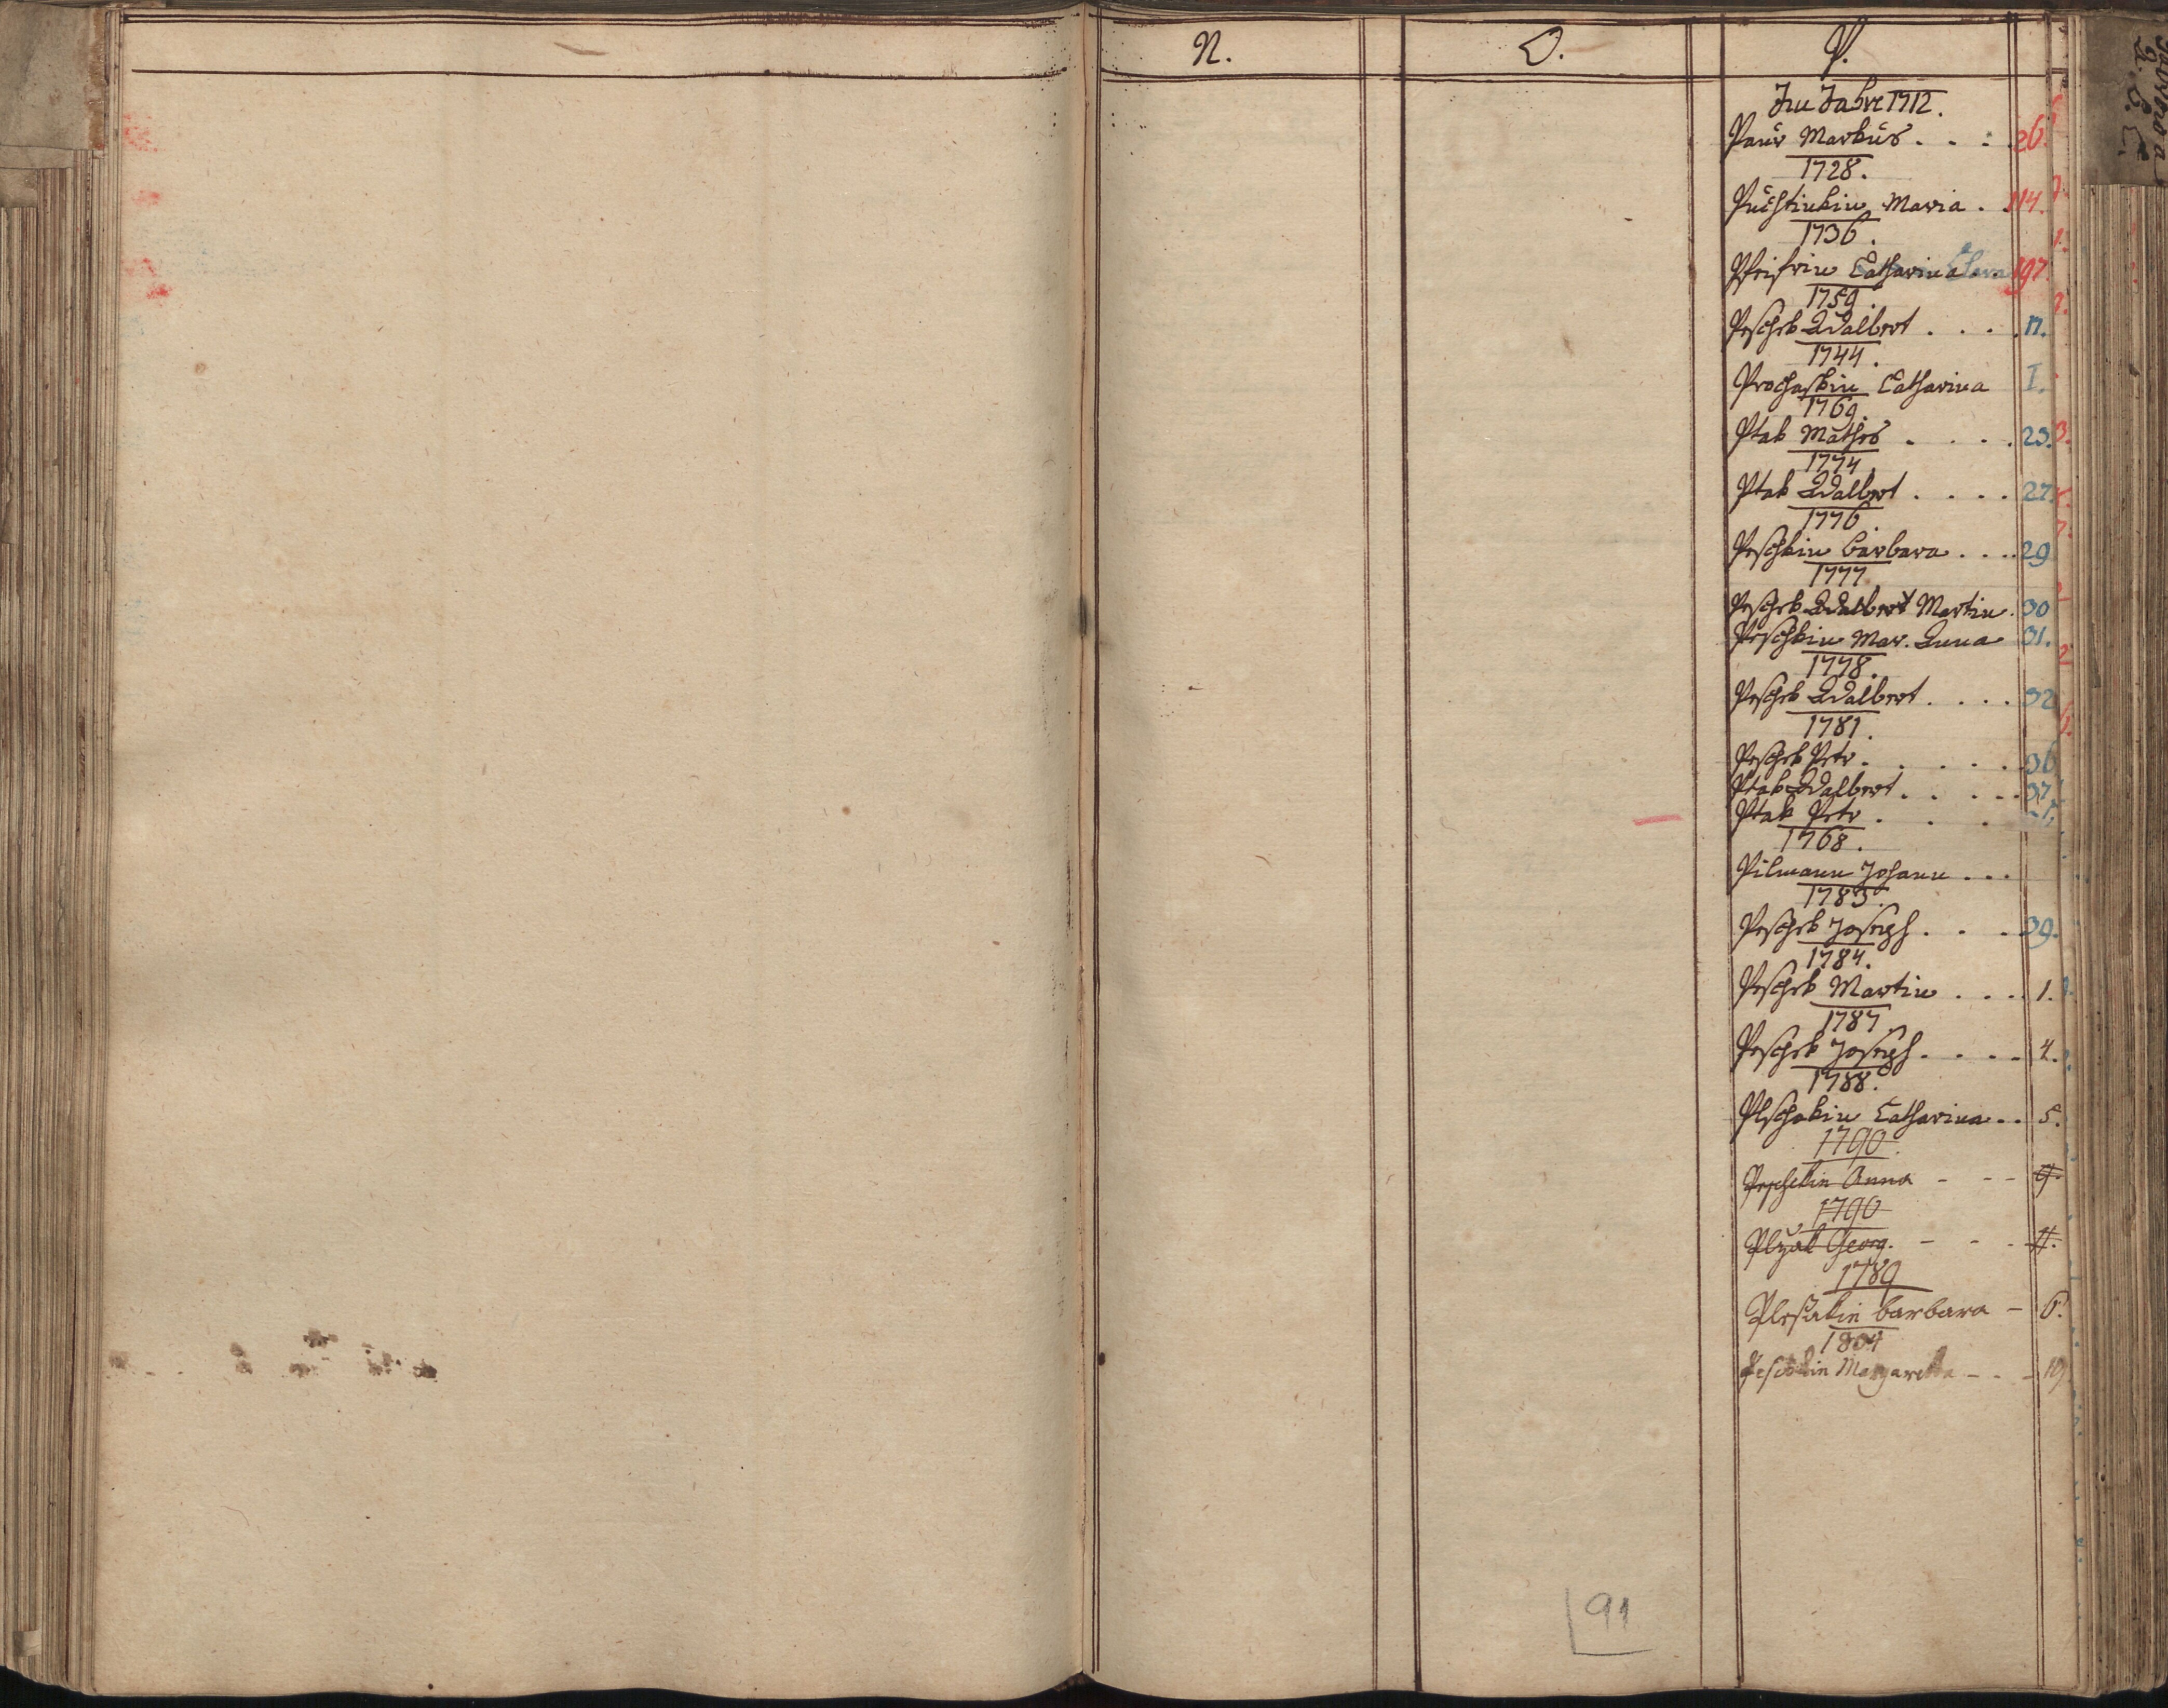 N.
O.
P.
Im Jahre 1712.
Paur Markus . . . . 26.
1728.
Puchtinkin Maria . 114.
1736.
Pfeifrin Catharina . . 197.
1759.
Peschek Adalbert . . . . 17.
1744.
Prochaskin Catharina I.
1769.
Ptak Mathes . . . . 23.
1774
Ptak Adalbert . . . . 27.
1776.
Peschkin Barbara . . . . 29
1777
Peschek Adalbert Martin . 30
Peschkin Mar. Anna 31.
1778.
Peschek Adalbert . . . . 32
1781.
Peschek Petr . . . . . . 36
Ptak Adalbert . . . . . 37
Ptak Petr . . . .
1768.
Pilmann Johann . . .
1783.
Peschek Joseph . . . . 39.
1784.
Peschek Martin . . . . 1.
1787.
Peschek Joseph . . . . . 4.
1788.
Plschakin Catharina . . 5.
1790.
Peschekin Anna - - - 9.
1790
Georg. - - - 11.
1789
Plesakin Barbara - 6.
1804
Margaretha - - - 19
91